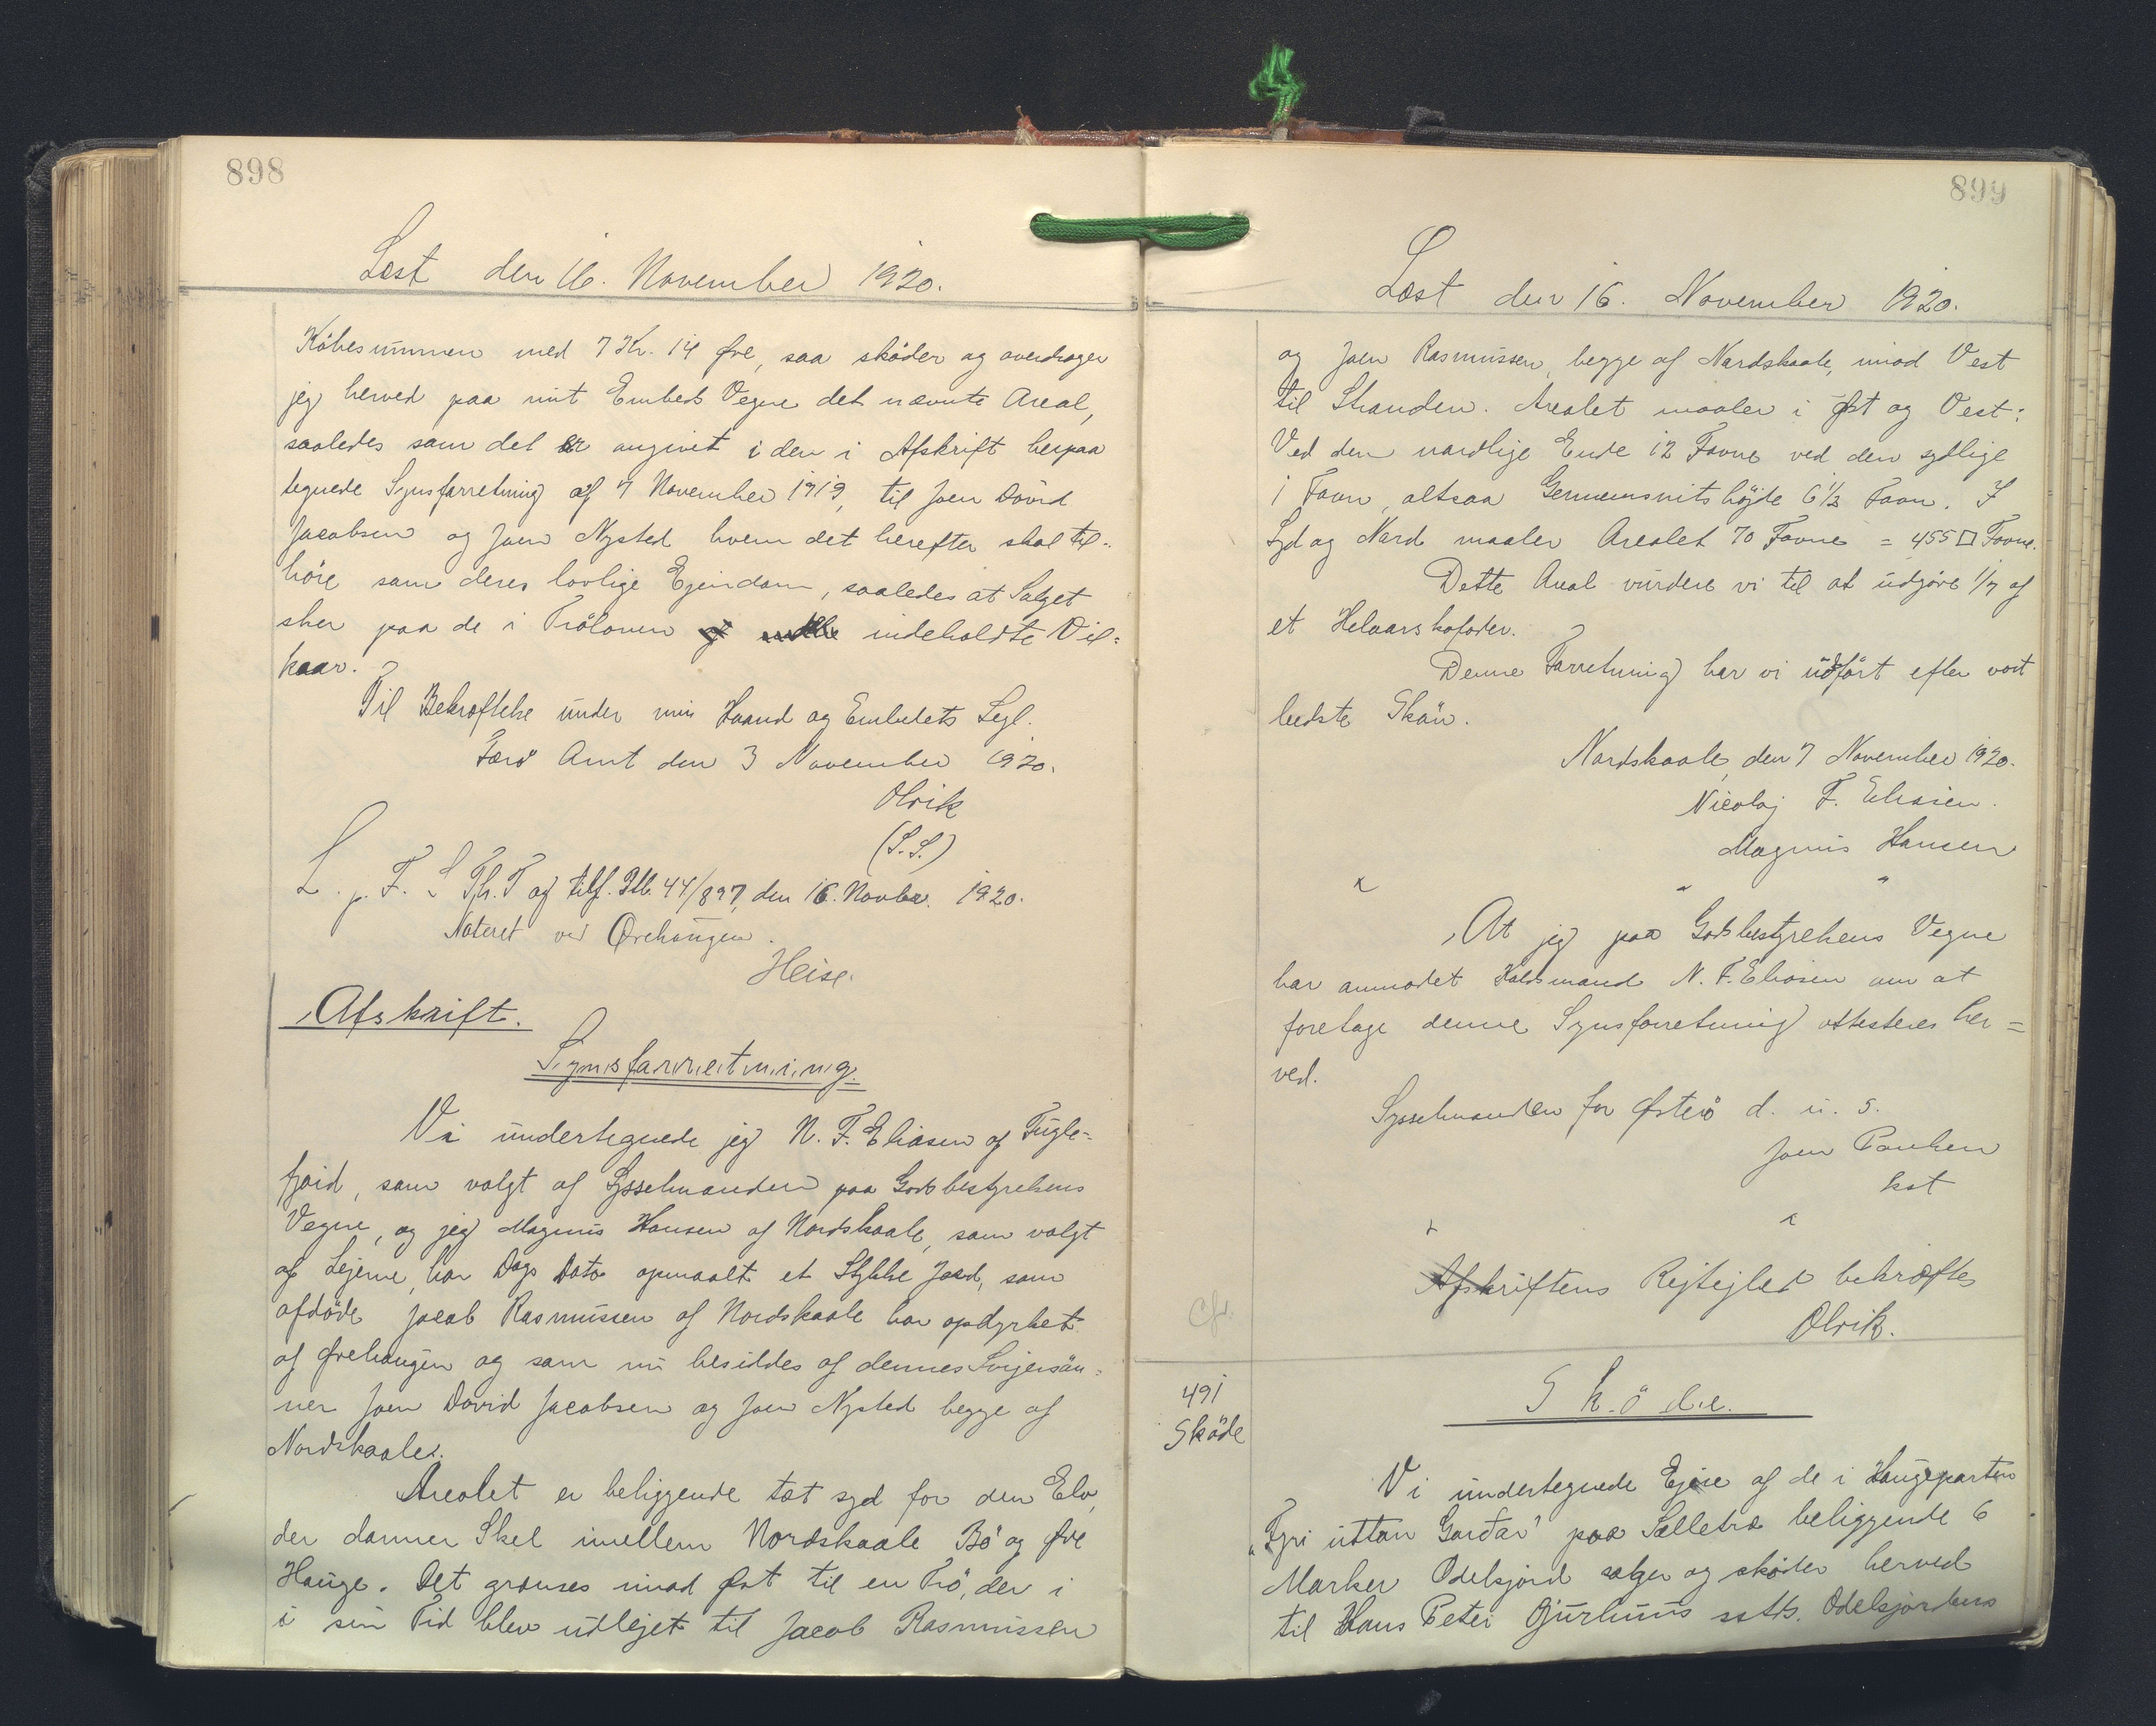 898
Læst den 16. November 1920.
Köbesummen med 7 Kr. 14 Øre, saa sköder og overdrager
jeg herved paa mit Embeds Vegne det nævnte Areal,
saaledes som det er angivet i den i Afskrift herpaa
tegnede Synsforretning af 7 November 1919, til Joen David
Jacobsen og Joen Nysted hvem det herefter skal til-
höre som deres lovlige Ejendom, saaledes at Salget
sker paa de i Tröloven indeholdte Vil=
kaar.
Til Bekræftelse under min Haand og Embedets Segl.
Færö Amt den 3 November 1920.
Olrik
(L.S.)
L. p. F. S Th. T og tilf. Ptb. 44/897, den 16. Novbr. 1920.
Noteret ved Ørehaugen.
Heise.
Afskrift.
Synsforretning.
Vi undertegnede jeg N. F. Eliasen af Fugle-
fjord, som valgt af Sysselmanden paa Godsbestyrelsens
Vegne, og jeg Magnus Hansen af Nordskaale, som valgt
af Lejerne, har Dags Dato opmaalt et Stykke Jord, som
afdöde Jacob Rasmussen af Nordskaale har opdyrket
af Ørehaugen og som nu besiddes af dennes Svigersön-
ner Joen David Jacobsen og Joen Nysted begge af
Nordskaale.
Arealet er beliggende tæt syd for den Elv,
der danner Skel imellem Nordskaale Bö og Øre
Hauge. Det grænses imod Øst til en Trö, der i
i sin Tid blev udlejet til Jacob Rasmussen
899
Læst den 16. November 1920.
og Joen Rasmussen, begge af Nordskaale, imod Vest
til Stranden. Arealet maaler i Øst og Vest:
Ved den nordlige Ende 12 Favne ved den sydlige
1 Favn, altsaa Gennemsnitshöjde 6 1/2 Favn. I
Syd og Nord maaler Arealet 70 Favne = 455 □ Favne.
Dette Areal vurdere vi til at udgöre 1/7 af
et Helaarskofoder.
Denne Forretning har vi udfört efter vort
bedste Skön.
Nordskaale, den 7 November 1920.
Nicolaj F. Eliasen.
Magnus Hansen
" " "
At jeg paa Godsbestyrelsens Vegne
har anmodet Holdsmand N. F. Eliasen om at
foretage denne Synsforretning attesteres her=
ved.
Sysselmanden for Østerö d. u. s.
Joen Poulsen
kst
" "
Afskriftens Rigtighed bekræftes
Olrik.
Cfr.
491
Sköde
Sköde.
Vi undertegnede Ejere af de i Haugeparten
"Fyri uttan Gardar" paa Selletræ beliggende 6
Marker Odelsjord sælger og sköder herved
til Hans Peter Gjurhuus sstds. Odelsjordens